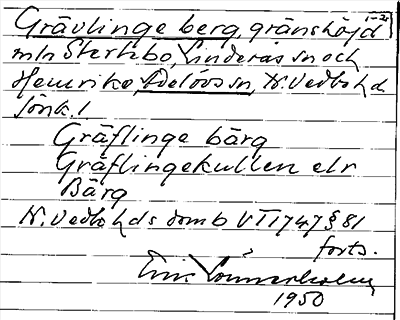 Grävlinge berg, gränshöjd
mln Sterkbo, Linderås sn och
Henriko, Adelövs sn, N. Vedbo hd
Jönk. l
Gräflinge bärg
Gräflingekullen elr
Bärg
N. Vedbo hds domb VT 1747 § 81
forts.
Eric Lönnerholm
1950